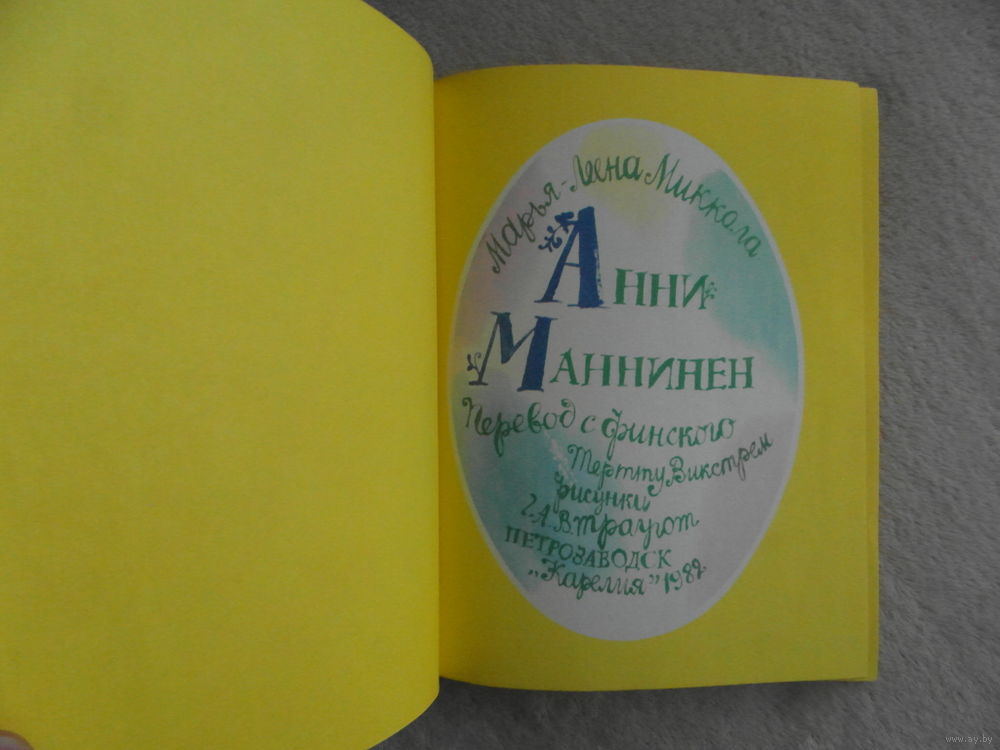 Марья-Леена Миккола
Анни
Маннинен
Перевод с финского
Терттy Викстрем
рисунки
Г.А.В.Траугот
ПЕТРОЗАВОДСК
„Карелия” 1982
www.ay.by